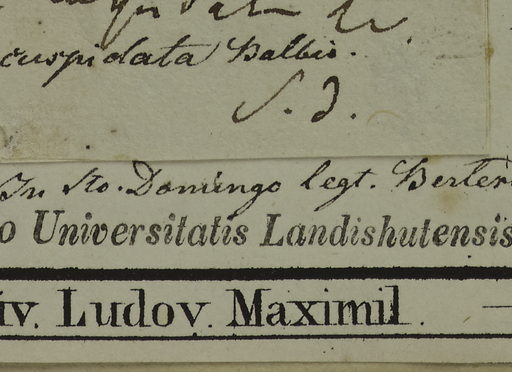 cuspidata Balbis.
S. D.
In Sto. Domingo legt. Berter
o Universitatis Landishutensis
iv. Ludov. Maximil.